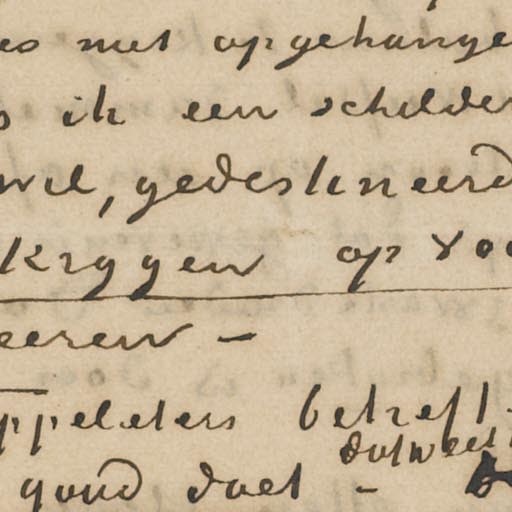 es met opgehange
s ik een schilder
wil, gedestineerd
krygen op voo
eeren —
ppeleters betreft
dutweet
goud doet - b